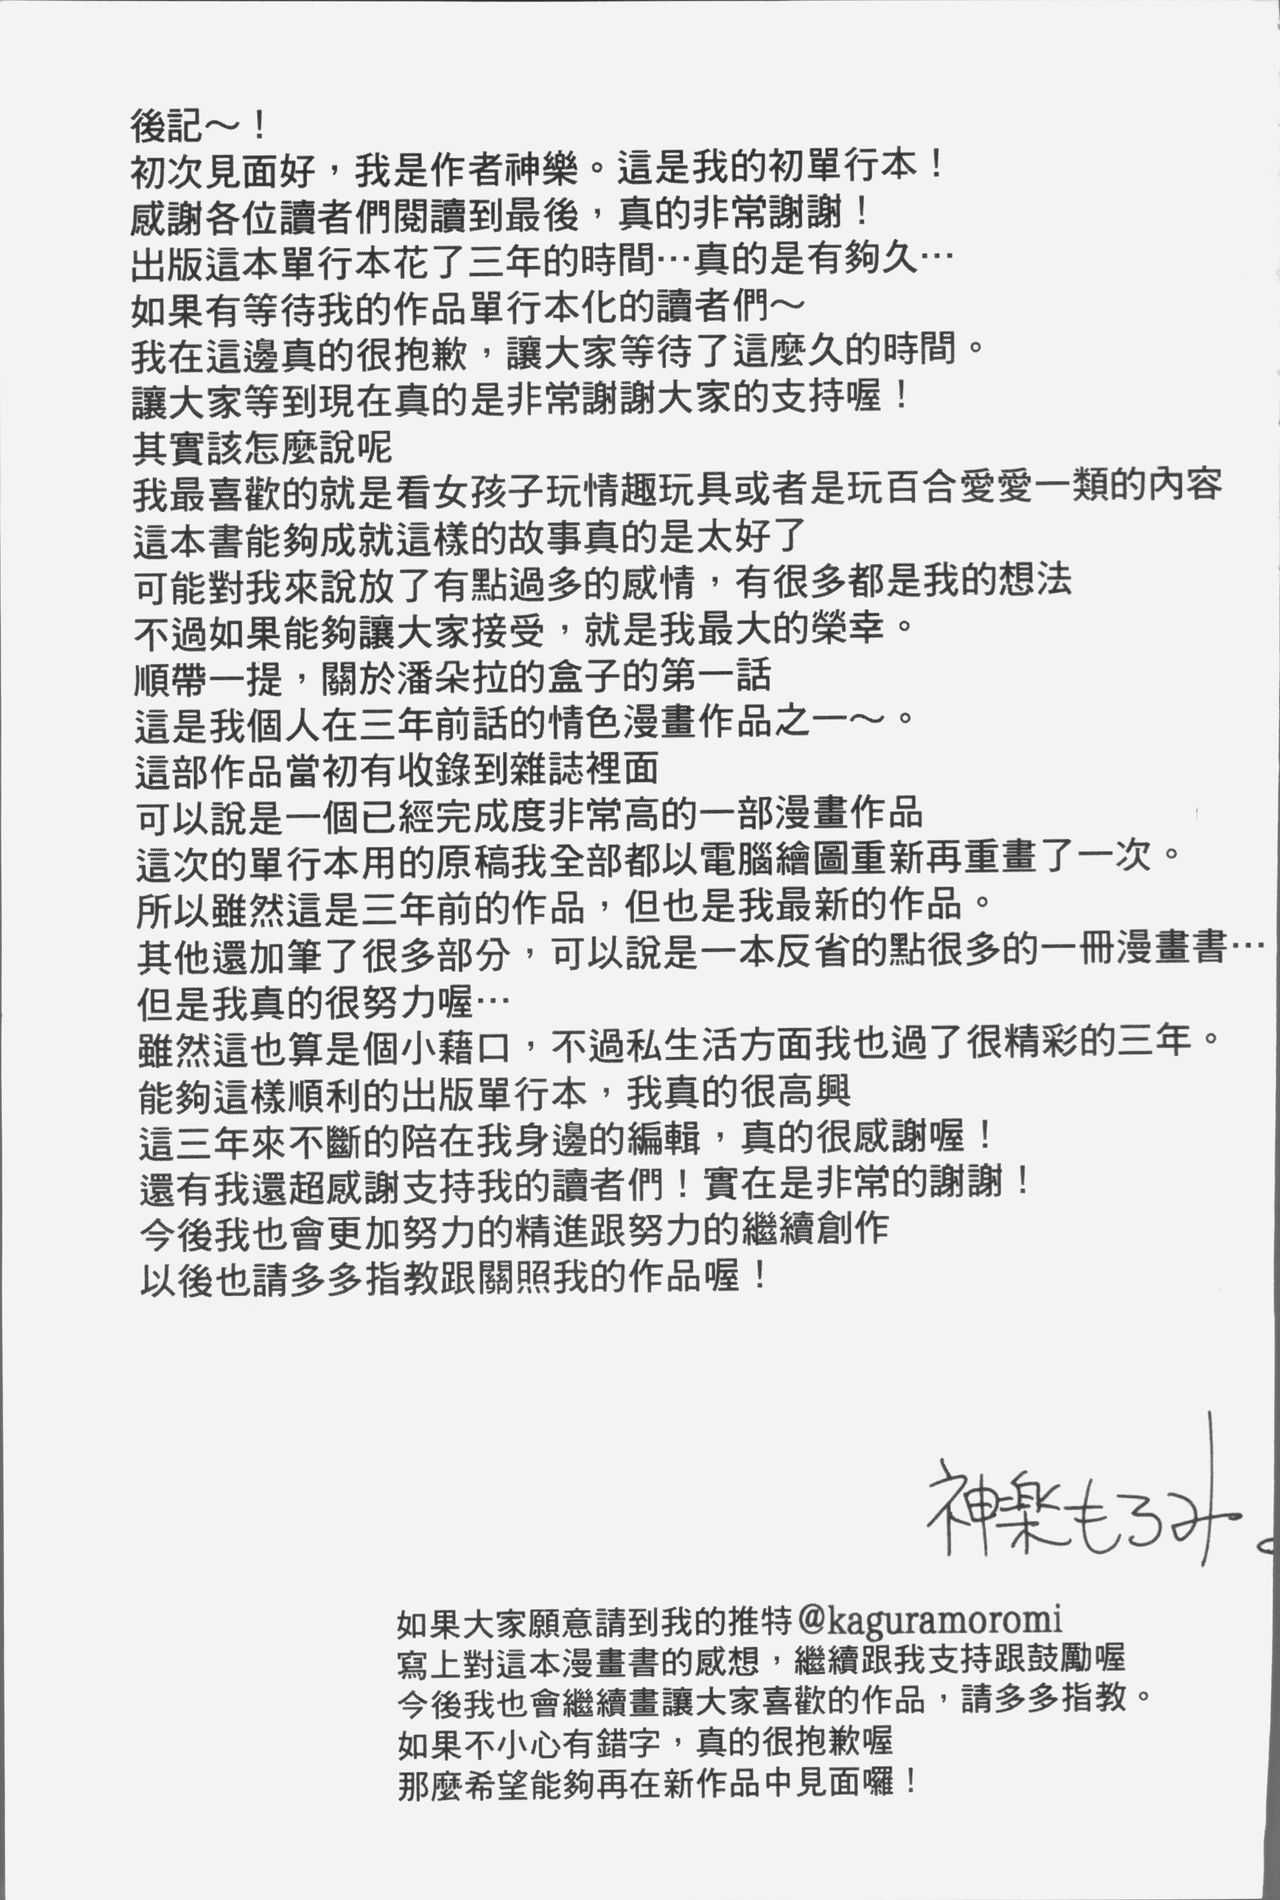 後記～！
初次見面好，我是作者神樂。這是我的初單行本！
感謝各位讀者們閱讀到最後，真的非常謝謝！
出版這本單行本花了三年的時間…真的是有夠久…
如果有等待我的作品單行本化的讀者們～
我在這邊真的很抱歉，讓大家等待了這麼久的時間。
讓大家等到現在真的是非常謝謝大家的支持喔！
其實該怎麼說呢
我最喜歡的就是看女孩子玩情趣玩具或者是玩百合愛愛一類的內容
這本書能夠成就這樣的故事真的是太好了
可能對我來說放了有點過多的感情，有很多都是我的想法
不過如果能夠讓大家接受，就是我最大的榮幸。
順帶一提，關於潘朵拉的盒子的第一話
這是我個人在三年前話的情色漫畫作品之一～。
這部作品當初有收錄到雜誌裡面
可以說是一個已經完成度非常高的一部漫畫作品
這次的單行本用的原稿我全部都以電腦繪圖重新再重畫了一次。
所以雖然這是三年前的作品，但也是我最新的作品。
其他還加筆了很多部分，可以說是一本反省的點很多的一冊漫畫書…
但是我真的很努力喔…
雖然這也算是個小藉口，不過私生活方面我也過了很精彩的三年。
能夠這樣順利的出版單行本，我真的很高興
這三年來不斷的陪在我身邊的編輯，真的很感謝喔！
還有我還超感謝支持我的讀者們！實在是非常的謝謝！
今後我也會更加努力的精進跟努力的繼續創作
以後也請多多指教跟關照我的作品喔！
神楽もろみ。
如果大家願意請到我的推特@kaguramoromi
寫上對這本漫畫書的感想，繼續跟我支持跟鼓勵喔
今後我也會繼續畫讓大家喜歡的作品，請多多指教。
如果不小心有錯字，真的很抱歉喔
那麼希望能夠再在新作品中見面囉！